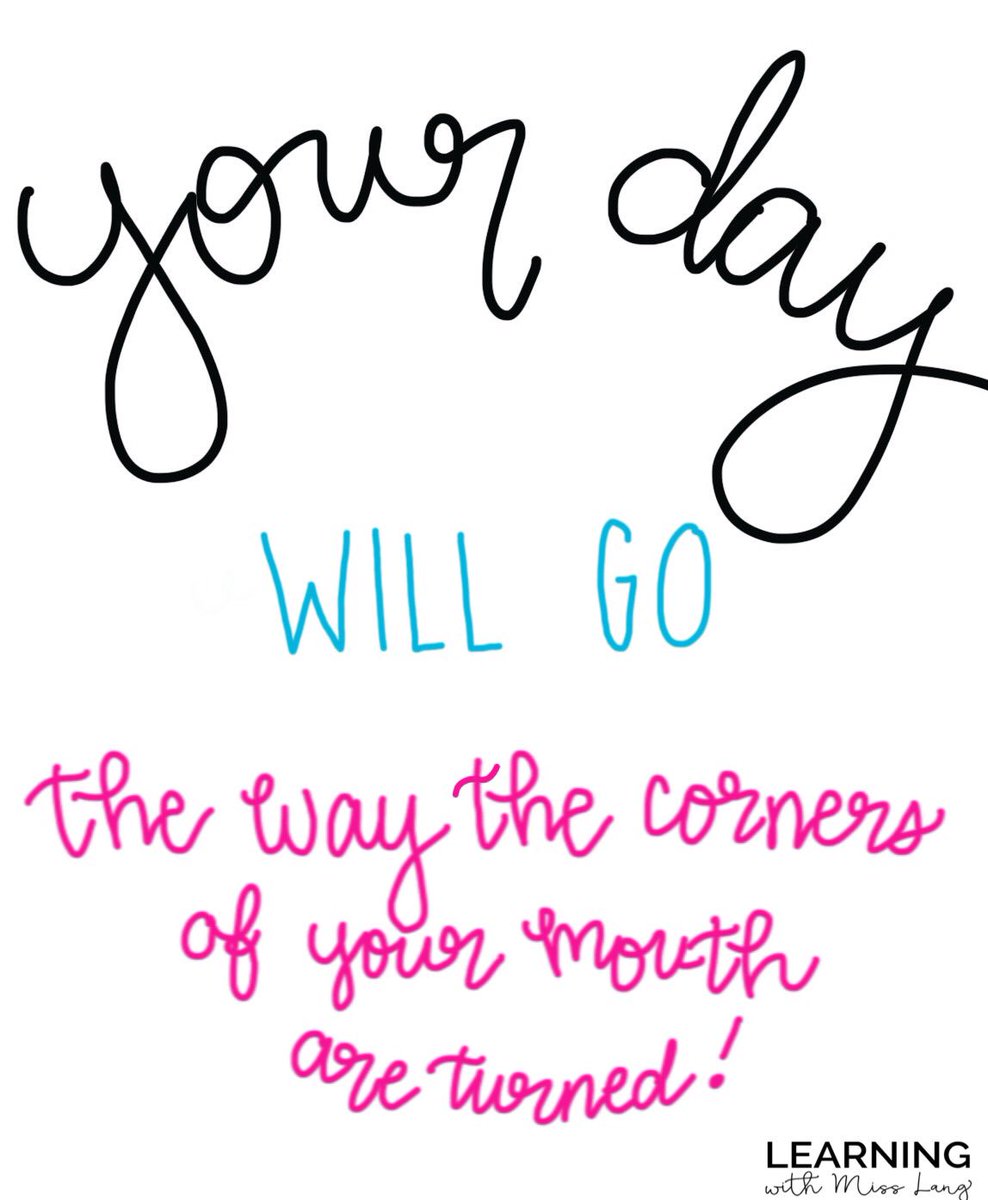 your day
WILL GO
the way the corners
of your mouth
are turned!
LEARNING
with Miss Lang